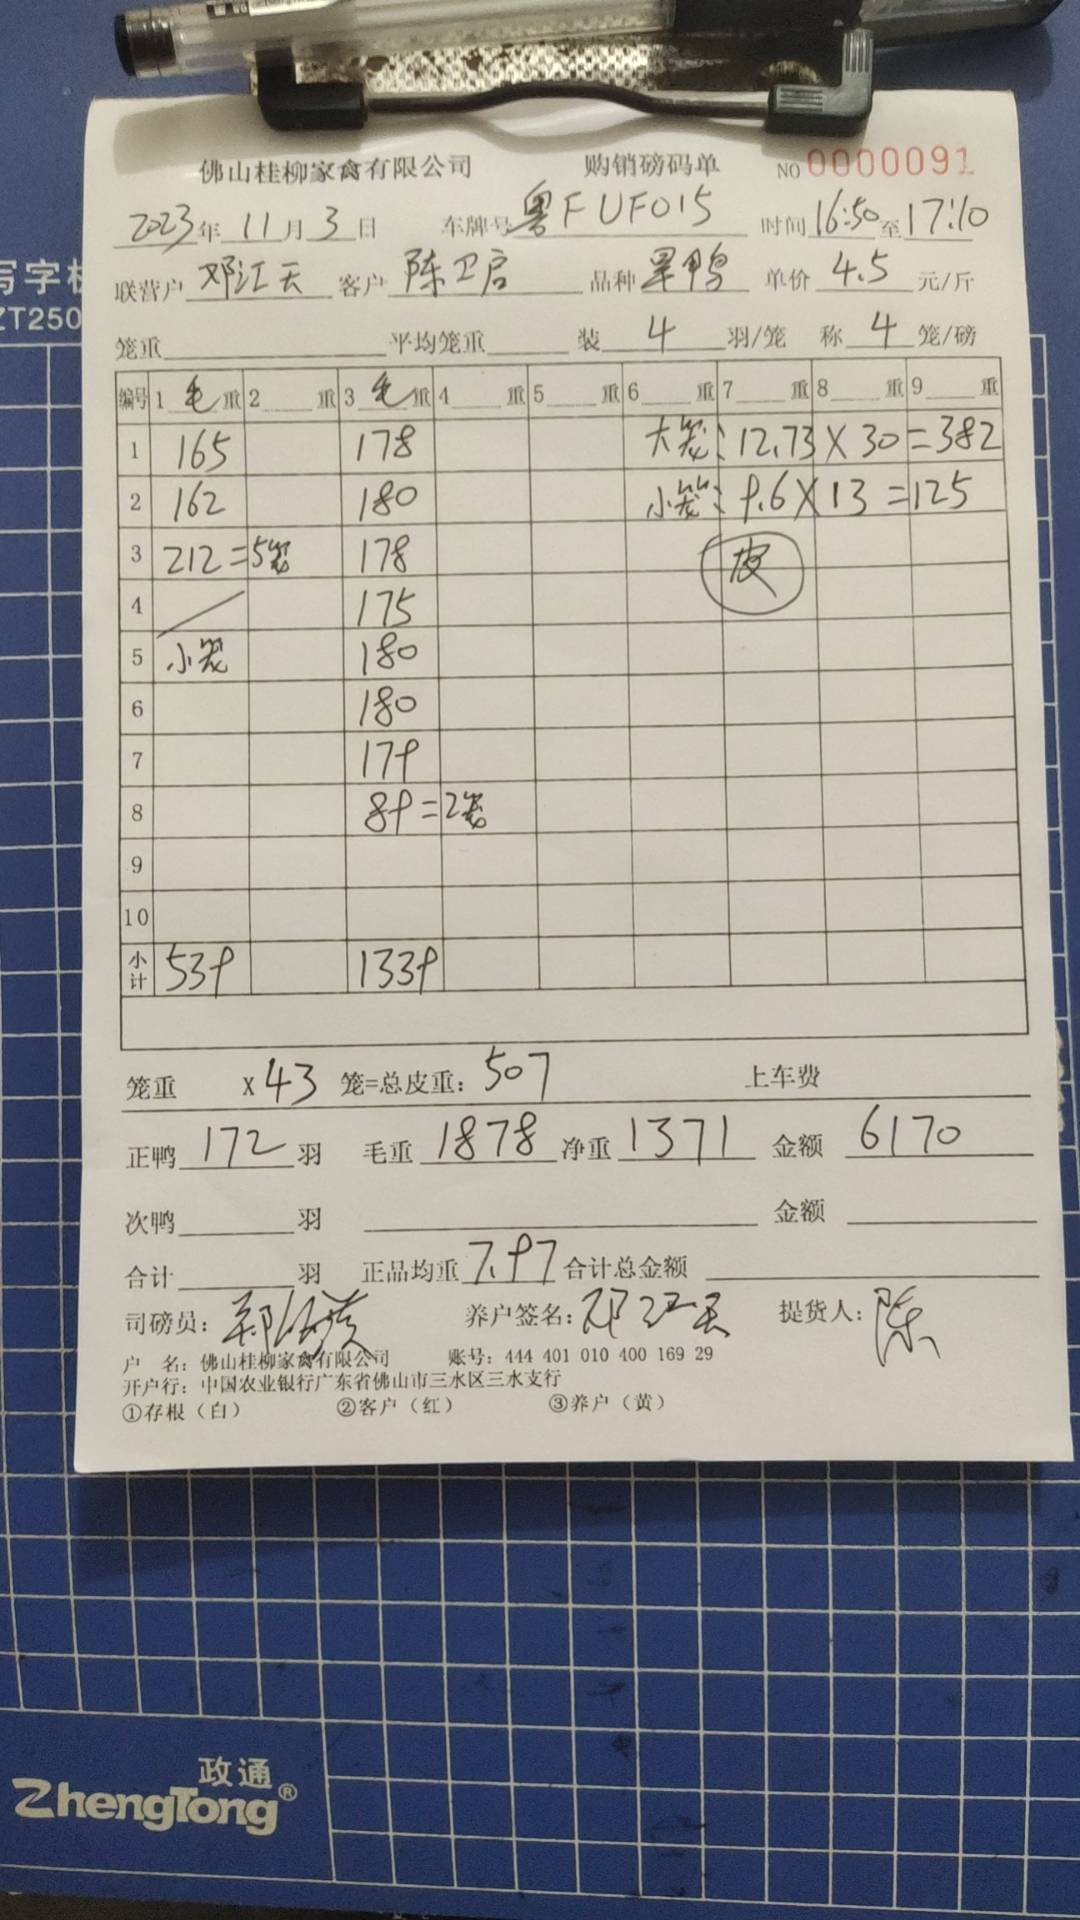 佛山桂柳家禽有限公司 购销磅码单 NO 0000091
2023年 11月 3日 车牌号 粤F UF015 时间 16:50 至 17:10
联营户 邓江天 客户 陈卫启 品种 黑鸭 单价 4.5 元/斤
笼重 平均笼重 装 4 羽/笼 称 4 笼/磅
编号 1 毛 重 2 重 3 毛 重 4 重 5 重 6 重 7 重 8 重 9 重
1 165 178 大笼: 12.73 X 30 = 382
2 162 180 小笼: 9.6 X 13 = 125
3 212=5笼 178 皮
4 175
5 小笼 180
6 180
7 179
8 89=2笼
9
10
小计 539 1339
笼重 x 43 笼=总皮重: 507 上车费
正鸭 172 羽 毛重 1878 净重 1371 金额 6170
次鸭 羽 金额
合计 羽 正品均重 7.97 合计总金额
司磅员: 养户签名: 邓江天 提货人: 陈
户 名: 佛山桂柳家禽有限公司 账号: 444 401 010 400 169 29
开户行: 中国农业银行广东省佛山市三水区三水支行
①存根(白) ②客户(红) ③养户(黄)
写字
ZT250
政通
ZhengTong®